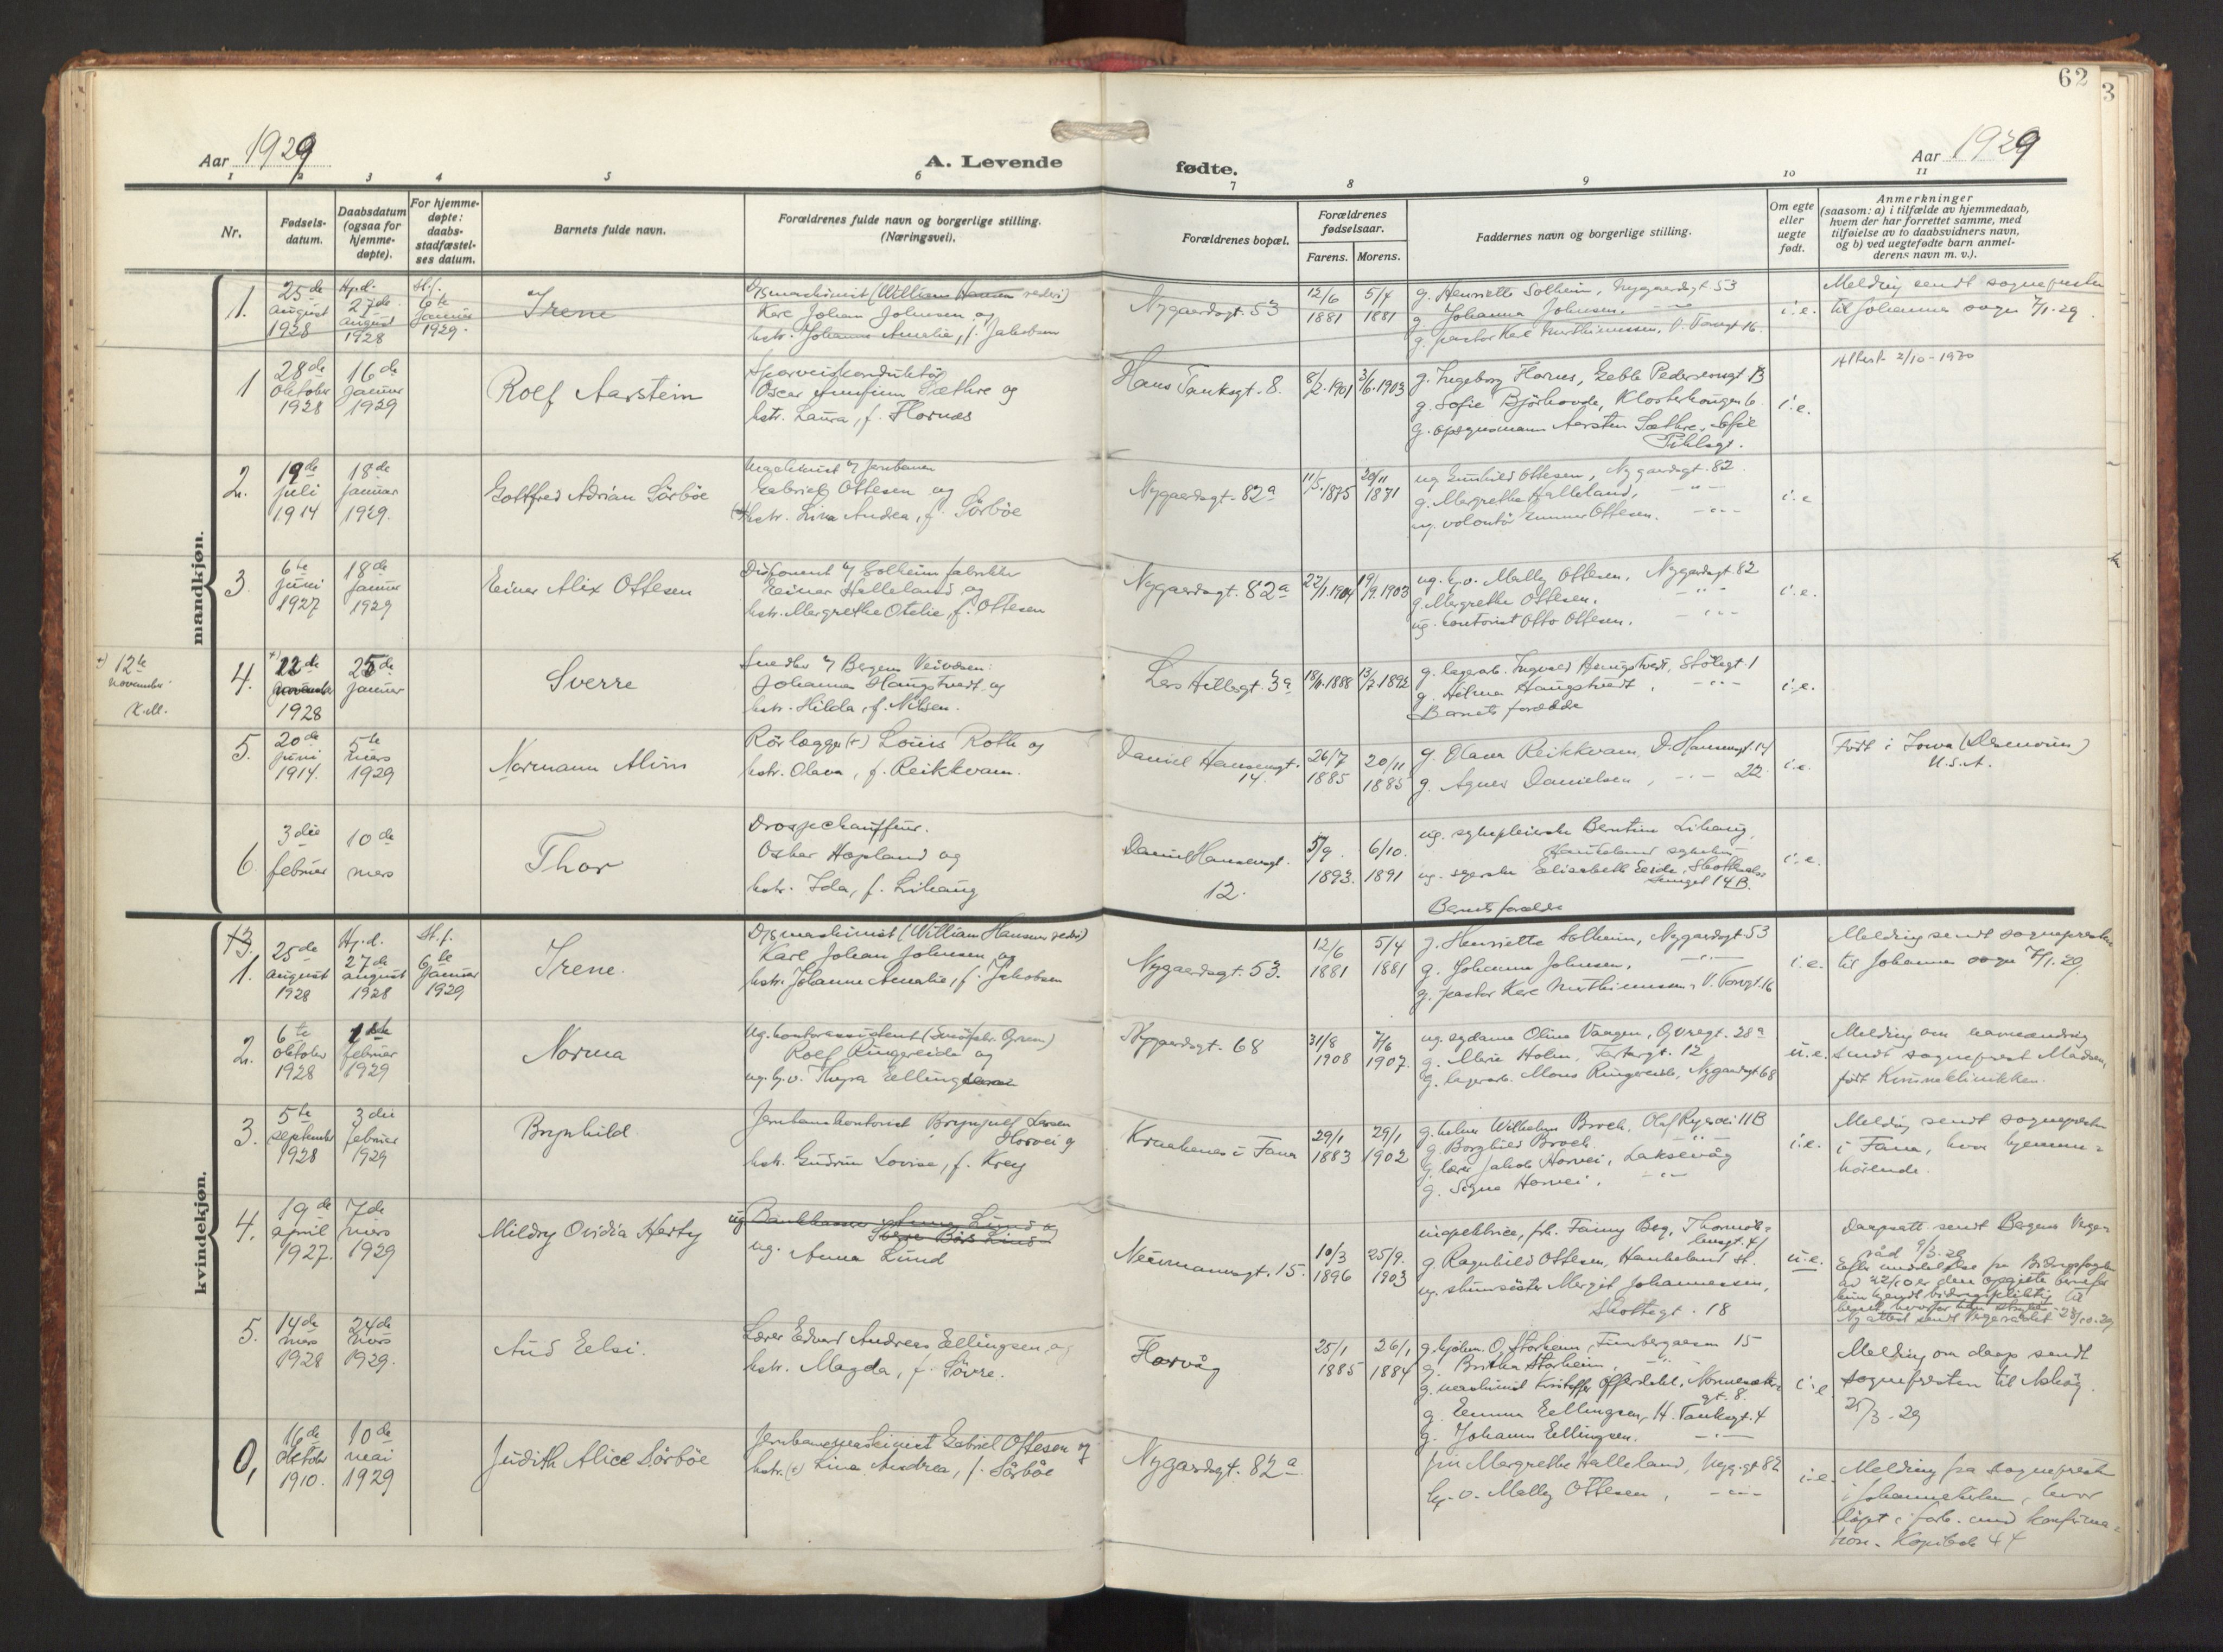 62
3
Aar 1929
A. Levende
fødte.
Aar 1929
1 2 3 4 5 6 7 8 9 10 11
Nr.
Fødsels-
datum.
Daabsdatum
(ogsaa for
hjemme-
døpte).
For hjemme-
døpte:
daabs-
stadfæstel-
ses datum.
Barnets fulde navn.
Forældrenes fulde navn og borgerlige stilling.
(Næringsvei).
Forældrenes bopæl.
Forældrenes
fødselsaar.
Farens. Morens.
Faddernes navn og borgerlige stilling.
Om egte
eller
uegte
født.
Anmerkninger
(saasom: a) i tilfælde av hjemmedaab,
hvem der har forrettet samme, med
tilføielse av to daabsvidners navn,
og b) ved uegtefødte barn anmel-
derens navn m. v.).
mandkjøn.
1. 25de august 1928
Hj.d. 27de august 1928
St.f. 6te januar 1929.
Irene
D/S maskinist (William Hansen rederi)
Karl Johan Johnsen og
hstr. Johanne Amalie, f. Jakobsen
Nygaardsgt. 53
12/6 1881
5/4 1881
g. Henriette Solheim, Nygaardsgt 53
g. Johanna Johnsen,
g. pastor Karl Marthinussen, V. Torvgt 16.
i.e.
Meldring sendt sognepresten
til Johannes sogn 7/1.29.
1 28de oktober 1928
16de januar 1929
Rolf Aarstein
Sporveiskonduktør
Oscar Arnfinn Sæthre og
hstr. Laura, f. Flornes
Hans Tanksgt. 8.
8/2.1901
3/6.1903
g. Ingeborg Flornes, Geble Pedersensgt 13
g. Sofie Bjørhovde, Klosterhaugen 6
g. opsynsmann Aarsten Sæthre, Sofie
i.e.
Attest 2/10-1930
2. 19de juli 1914
18de januar 1929.
Gottfred Adrian Sörböe
Maskinist v/ Jernbanen
Gabriel Ottesen og
hstr. Lina Andrea, f. Sörböe
Nygaardsgt. 82a
11/5.1875
20/11 1871
ug. Gunhild Ottesen, Nygaardsgt. 82
g. Margrethe Halleland, -"-
ug. volontør Gunnar Ottesen. -"-
i.e
3. 6te juni 1927
18de januar 1929
Einar Alix Ottesen
Disponent v/ Solheim fabrikker
Einar Halleland og
hstr. Margrethe Otelie, f. Ottesen
Nygaardsgt. 82a
22/1.1904
19/9.1903
ug. hj.v. Mally Ottesen, Nygaardsgt. 82
g. Margrethe Ottesen. -"-
ug. kontorist Otto Ottesen. -"-
i.e.
+) 12te
november
K.M.
4. +) 12de november 1928
25de januar
Sverre
Snedker v/ Bergens Veivæsen:
Johannes Haugstvedt og
hstr. Hilda, f. Nilsen.
Lars Hillesgt. 3a
18/6.1888
13/7.1892
g. lagerarb. Ingvald Haugstvedt, Stölegt. 1
g. Hilma Haugstvedt, -"-
Barnets forældre
i.e.
5. 20de juni 1914.
5te mars 1929
Normann Alvin
Rörlægger (+) Louis Roth og
hstr. Olava, f. Reikkvam.
Daniel Hansensgt. 14.
26/7 1885
20/11 1885
g. Olava Reikkvam, D. Hansensgt. 14
g. Agnes Danielsen, -"- 22
i.e.
Født i Iowa (Desmoins)
U.S.A.
6 3die februar
10de mars
Thor
Drosjechauffeur.
Oskar Hopland og
hstr. Ida, f. Lihaug
Daniel Hansensgt. 12.
5/9. 1893.
6/10. 1891
ug. sykepleierske Berntine Lihaug,
Haukeland sykehus
ug. syerske Elisabeth Eide, Skottesalen
14B.
Barnets forældre
i.e.
kvindekjøn.
13.
1. 25de august 1928
Hj.d. 27de august 1928
St.f. 6te januar 1929
Irene.
D/S maskinist (William Hansens rederi)
Karl Johan Johnsen og
hstr. Johanne Amalie, f. Jakobsen
Nygaardsgt. 53.
12/6 1881
5/4 1881
g. Henriette Solheim, Nygaardsgt 53
g. Johanna Johnsen, -"-
g. pastor Karl Marthinussen, V. Torvgt. 16
i.e.
Meldring sendt sognepresten
til Johannes sogn 7/1.29.
2. 6te oktober 1928
februar 1929
Norma
Ug. kontorassistent
Rolf Ringereide og
ug. hj.v. Thyra Ellingsen
Nygaardsgt. 68
31/8 1908
7/6 1907.
ug. sydame Olina Vaagen, Øvregt. 28a
g. Marie Holm, Tartargt. 12
g. lagerarb. Mons Ringereide, Nygaardsgt 68
u.e.
Melding om navneendring
sendt sogneprest Madsen,
født Kvinneklinikken.
3. 5te september 1928
3die februar 1929
Brynhild
Jernbanekontorist Brynjulf Larsen
Horvei og
hstr. Gudrun Lovise, f. Krey
Kraakenes i Fana
29/1 1883
29/1 1902
Wilhelm Broch, Olaf Ryesvei 11B
g. Borghild Broch, -"-
g. lærer Jakob Horvei, Laksevåg
g. Signe Horvei, -"-
i.e.
Melding sendt sognepresten
i Fana, hvor hjemme-
hörende.
4. 19de april 1927.
7de mars 1929
Mildry Ovidia Herty
ug. Anna Lund
Neumannsgt. 15.
10/3 1896
25/9. 1903
inspektrice, frk. Fanny Bøg, Thormöh-
lensgt. 41
g. Ragnhild Ottesen, Haukeland st.
ug. Margit Johannessen,
Skottegt. 18
u.e.
Daapsatt. sendt Bergens Verge-
råd 9/3.29
Ny attest sendt Vergeraadet 28/10.29
5. 14de mars 1928
24de mars 1929.
Aud Elsi.
Lærer Edvard Andreas Ellingsen og
hstr. Magda, f. Sörre.
Florvåg
25/1 1885
26/1 1884
g. O. Storheim, 15
g. Britha Storheim,
g. maskinist Kristoffer Offerdahl,
gt. 8.
g. Emma Ellingsen, H. Tanksgt. 4
g. Johann Ellingsen. -"-
i.e.
Melding om daap sendt
sognepresten til Askøy.
25/3.29
0, 16de oktober 1910.
10de mai 1929
Judith Alice Sörböe
Jernbanemaskinist Gabriel Ottesen og
hstr. (+) Lina Andrea, f. Sörböe
Nygaardsgt. 82a
fru Margrethe Halleland, Nyg.gt 82
hj.v. Mally Ottesen, -"-
i.e.
Melding fra sogneprest
i Johanneskirken, hvor
döpt i forb. med konfirma-
tion.